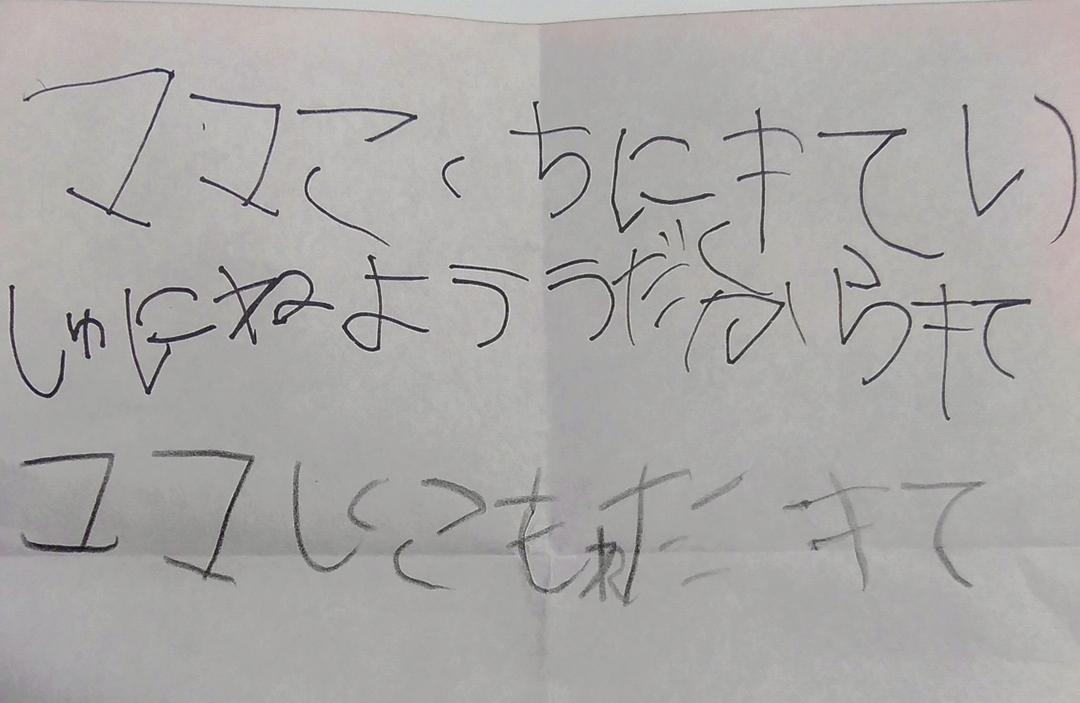 ママこっちにきてい
しゅにねよううだからきて
ママしくこも きて